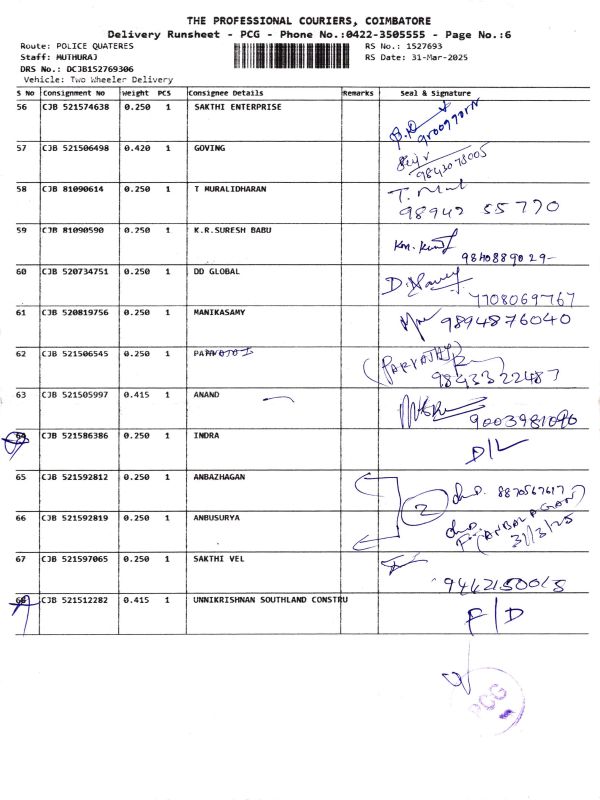 THE PROFESSIONAL COURIERS, COIMBATORE
Delivery Runsheet - PCG - Phone No.:0422-3505555 - Page No.:6
Route: POLICE QUATERES RS No.: 1527693
Staff: MUTHURAJ RS Date: 31-Mar-2025
DRS No.: DCJB152769306
Vehicle: Two Wheeler Delivery
S No Consignment No Weight PCS Consignee Details Remarks Seal & Signature
56 CJB 521574638 0.250 1 SAKTHI ENTERPRISE
57 CJB 521506498 0.420 1 GOVING
9843078005
58 CJB 81090614 0.250 1 T MURALIDHARAN
98942 55770
59 CJB 81090590 0.250 1 K.R.SURESH BABU
9840889029
60 CJB 520734751 0.250 1 DD GLOBAL
7708069767
61 CJB 520819756 0.250 1 MANIKASAMY 9894876040
62 CJB 521506545 0.250 1
(PARVATHI)
9843322487
63 CJB 521505997 0.415 1 ANAND
9003981090
64 CJB 521586386 0.250 1 INDRA
D/L
65 CJB 521592812 0.250 1 ANBAZHAGAN
2 8870567617
66 CJB 521592819 0.250 1 ANBUSURYA
(ANBALAGAN)
31/3/25
67 CJB 521597065 0.250 1 SAKTHI VEL
9442150015
68 CJB 521512282 0.415 1 UNNIKRISHNAN SOUTHLAND CONSTRU
F/D
PCG